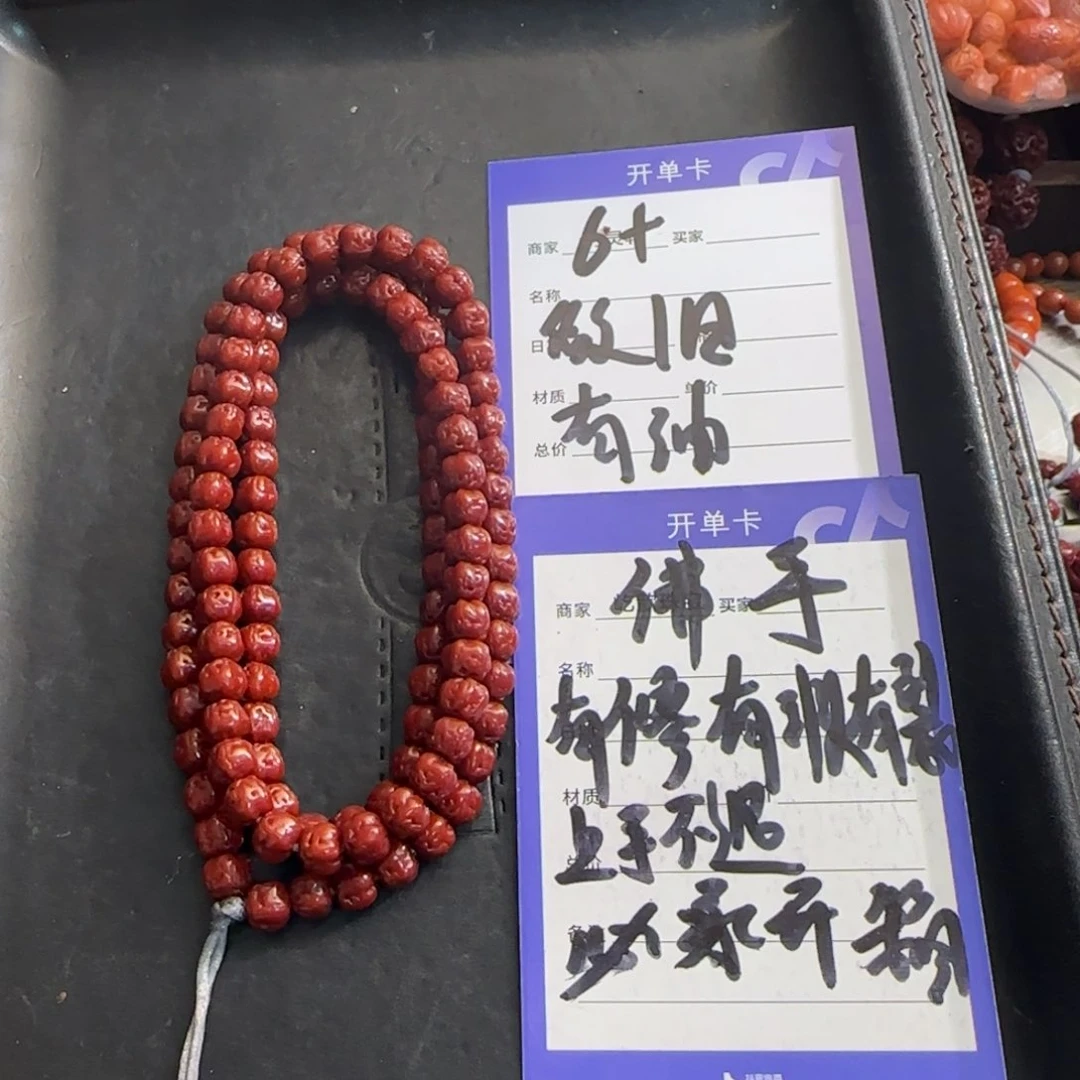 开单卡
商家 6+ 买家
名称
做旧
材质 单价
有油
总价
开单卡
佛手
商家 买家
名称
有修有沁有裂
材质
上手不退
总价
开